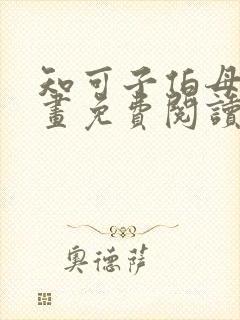 知可子伯母
畫免費閱讀
奧德薩